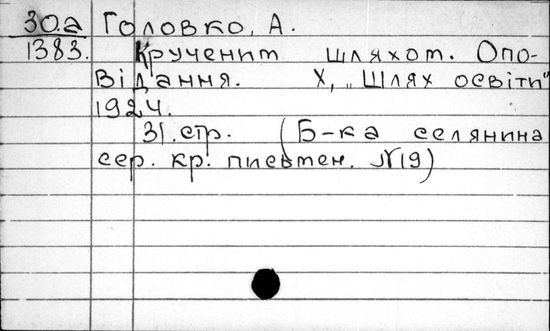 30.a Головко, А.
1383. Крученим шляхом. Опо-
відання. Х, „Шлях освіти"
1924.
31.стр. (Б-ка селянина
сер. кр. письмен. №19)